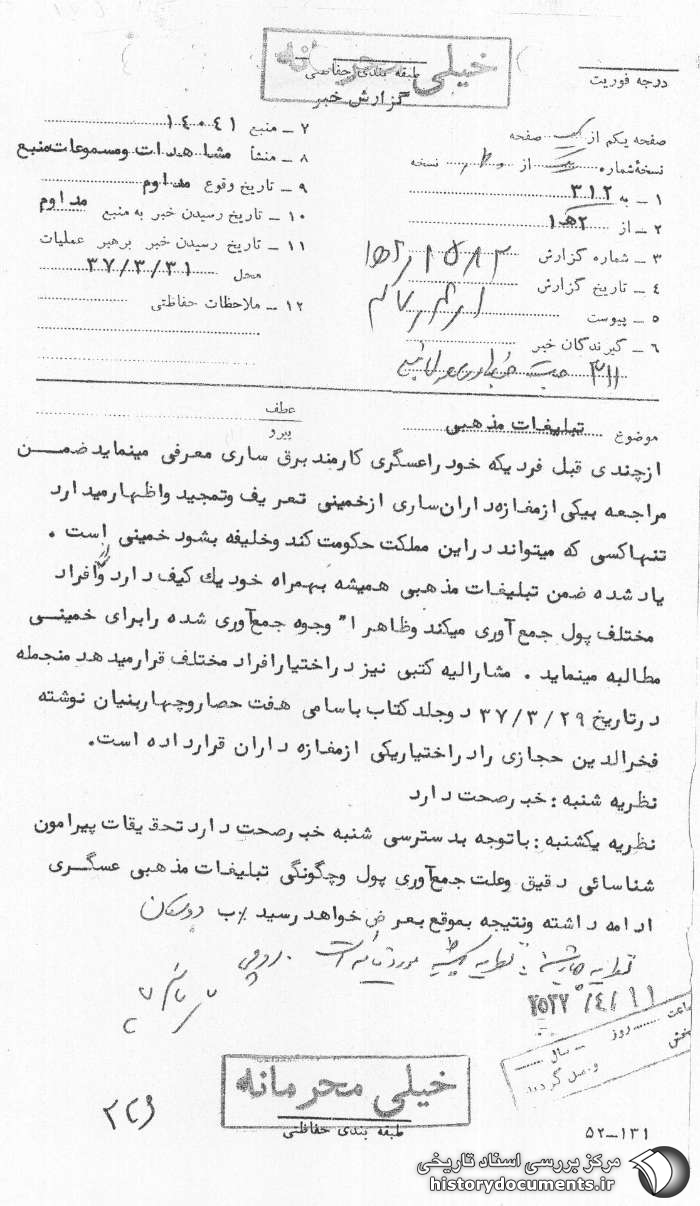 خیلی محرمانه
طبقه بندی حفاظتی
گزارش خبر
درجه فوریت
صفحه یکم از یک صفحه
نسخهٔ شماره یک از نسخه
۱ ـ به ۳۱۲
۲ ـ از ۲هـ۱
۳ ـ شماره گزارش
۴ ـ تاریخ گزارش
۵ ـ پیوست
۶ ـ گیرندگان خبر
۳۱۱
۷ ـ منبع ۱۴۰۴۱
۸ ـ منشأ مشاهدات ومسموعات منبع
۹ ـ تاریخ وقوع مداوم
۱۰ ـ تاریخ رسیدن خبر به منبع مداوم
۱۱ ـ تاریخ رسیدن خبر برهبر عملیات
محل ۳۷/۳/۳۱
۱۲ ـ ملاحظات حفاظتی
موضوع تبلیغات مذهبی
عطف
پیرو
ازچندی قبل فردیکه خودراعسگری کارمند برق ساری معرفی مینماید ضمن
مراجعه بیکی ازمغازه داران ساری ازخمینی تعریف وتمجید واظهارمیدارد
تنهاکسی که میتواند دراین مملکت حکومت کند وخلیفه بشود خمینی است .
یاد شده ضمن تبلیغات مذهبی همیشه بهمراه خود یك کیف دارد واز افراد
مختلف پول جمع آوری میکند وظاهرا" وجوه جمع‌آوری شده رابرای خمینی
مطالبه مینماید . مشارالیه کتبی نیز دراختیارافراد مختلف قرارمیدهد منجمله
درتاریخ ۳۷/۳/۲۹ دوجلد کتاب باسامی هفت حصاروچهاربنیان نوشته
فخرالدین حجازی رادراختیاریکی ازمغازه داران قرارداده است.
نظریه شنبه : خبرصحت دارد
نظریه یکشنبه : باتوجه بدسترسی شنبه خبرصحت دارد تحقیقات پیرامون
شناسائی دقیق وعلت جمع‌آوری پول وچگونگی تبلیغات مذهبی عسگری
ادامه داشته ونتیجه بموقع بعرض خواهد رسید
نظریه چهارشنبه : نظریه یکشنبه مورد تائید است .
۲۵۳۷/۴/۱۱
ساعت روز سال
واصل گردید
خیلی محرمانه
طبقه بندی حفاظتی
۵۲-۱۳۱
مرکز بررسی اسناد تاریخی
historydocuments.ir